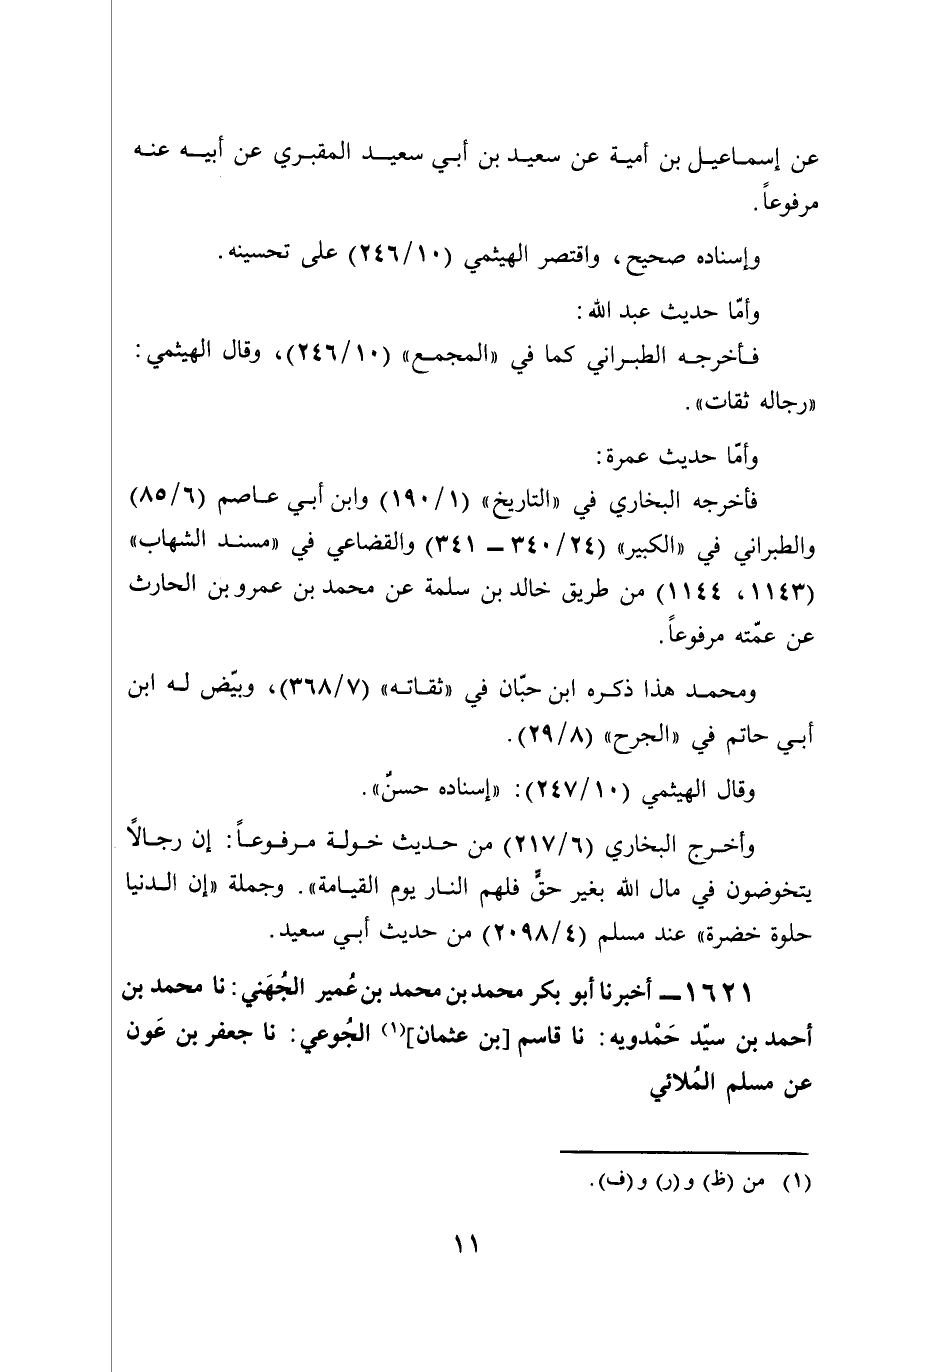 عن إسماعيل بن أمية عن سعيد بن أبي سعيد المقبري عن أبيه عنه
مرفوعاً.
وإسناده صحيح، واقتصر الهيثمي (٢٤٦/١٠) على تحسينه.
وأمّا حديث عبد الله:
فأخرجه الطبراني كما في «المجمع» (٢٤٦/١٠)، وقال الهيثمي:
«رجاله ثقات».
وأمّا حديث عمرة:
فأخرجه البخاري في «التاريخ» (١٩٠/١) وابن أبي عاصم (٨٥/٦)
والطبراني في «الكبير» (٣٤٠/٢٤ ــ ٣٤١) والقضاعي في «مسند الشهاب»
(١١٤٣، ١١٤٤) من طريق خالد بن سلمة عن محمد بن عمرو بن الحارث
عن عمّته مرفوعاً.
ومحمد هذا ذكره ابن حبّان في «ثقاته» (٣٦٨/٧)، وبيّض له ابن
أبي حاتم في «الجرح» (٢٩/٨).
وقال الهيثمي (٢٤٧/١٠): «إسناده حسنٌ».
وأخرج البخاري (٢١٧/٦) من حديث خولة مرفوعاً: إن رجالاً
يتخوضون في مال الله بغير حقٍّ فلهم النار يوم القيامة». وجملة «إن الدنيا
حلوة خضرة» عند مسلم (٢٠٩٨/٤) من حديث أبي سعيد.
١٦٢١ــ أخبرنا أبو بكر محمد بن محمد بن عُمير الجُهَني: نا محمد بن
أحمد بن سيّد حَمْدويه: نا قاسم [بن عثمان](١) الجُوعي: نا جعفر بن عَون
عن مسلم المُلائي
(١) من (ظ) و(ر) و(ف).
١١